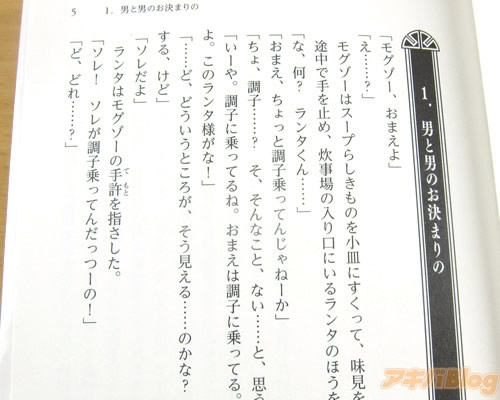 5　1. 男と男のお決まりの
1. 男と男のお決まりの
「モグゾー、おまえよ」
「え……？」
モグゾーはスープらしきものを小皿にすくって、味見を
途中で手を止め、炊事場の入り口にいるランタのほうを
「な、何？　ランタくん……」
「おまえ、ちょっと調子乗ってんじゃねーか」
「ちょ、調子……？　そ、そんなこと、ない……と、思う
「いーや。調子に乗ってるね。おまえは調子に乗ってる。
よ。このランタ様がな！」
「……ど、どういうところが、そう見える……のかな？
する、けど」
「ソレだよ」
ランタはモグゾーの手許を指さした。
てもと
「ソレ！　ソレが調子乗ってんだっつーの！」
「ど、どれ……？」
アキバBlog